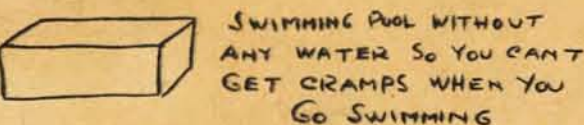 SWIMMING POOL WITHOUT
ANY WATER SO YOU CANT
GET CRAMPS WHEN YOU
GO SWIMMING